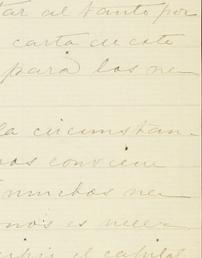 tar al tanto por
carta de este
para los ne-
la circunstan-
nos conviene
muchos ne-
nos es nece-
el capital